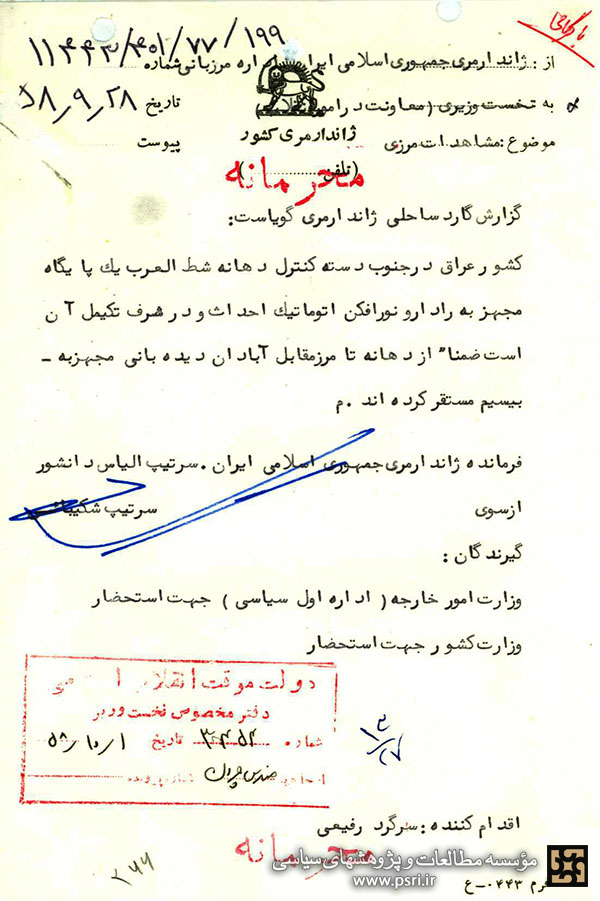 بایگانی
از : ژاندارمری جمهوری اسلامی ایران اداره مرزبانی شماره ۱۱۴۴۳/۴۰۱/۷۷/۱۹۹
به نخست وزیری (معاونت در امور انقلاب) تاریخ ۵۸/۹/۲۸
ژاندارمری کشور
موضوع : مشاهدات مرزی پیوست
(تلفن ........)
محرمانه
گزارش گارد ساحلی ژاندارمری گویاست :
کشور عراق در جنوب دسته کنترل دهانه شط العرب یک پایگاه
مجهز به رادار و نورافکن اتوماتیک احداث و در شرف تکیمل آن
است ضمنا" از دهانه تا مرز مقابل آبادان دیده بانی مجهز به -
بیسیم مستقر کرده اند .م
فرمانده ژاندارمری جمهوری اسلامی ایران . سرتیپ الیاس دانشور
ازسوی سرتیپ شکیبا
گیرندگان :
وزارت امور خارجه ( اداره اول سیاسی ) جهت استحضار
وزارت کشور جهت استحضار
دولت موقت انقلاب اسلامی
دفتر مخصوص نخست وزیر
شماره ۳۰۴۵۴ تاریخ ۵۸/۱۰/۱
شماره پرونده
اقدام کننده : سرگرد رفیعی
محرمانه
۲۶۶
مؤسسه مطالعات و پژوهشهای سیاسی
www.psri.ir
فرم ۰۴۴۳-ع